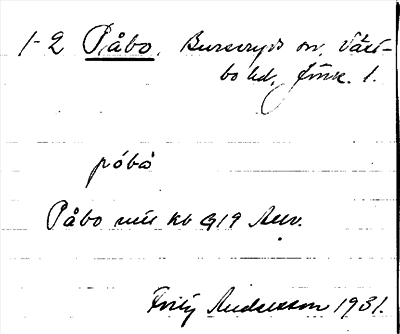 1-2 Påbo. Burseryds sn. Väst-
bo hd. Jönk. l.
póbo
Påbo mtl kb 919 Avv.
Fritz Andersson 1931.